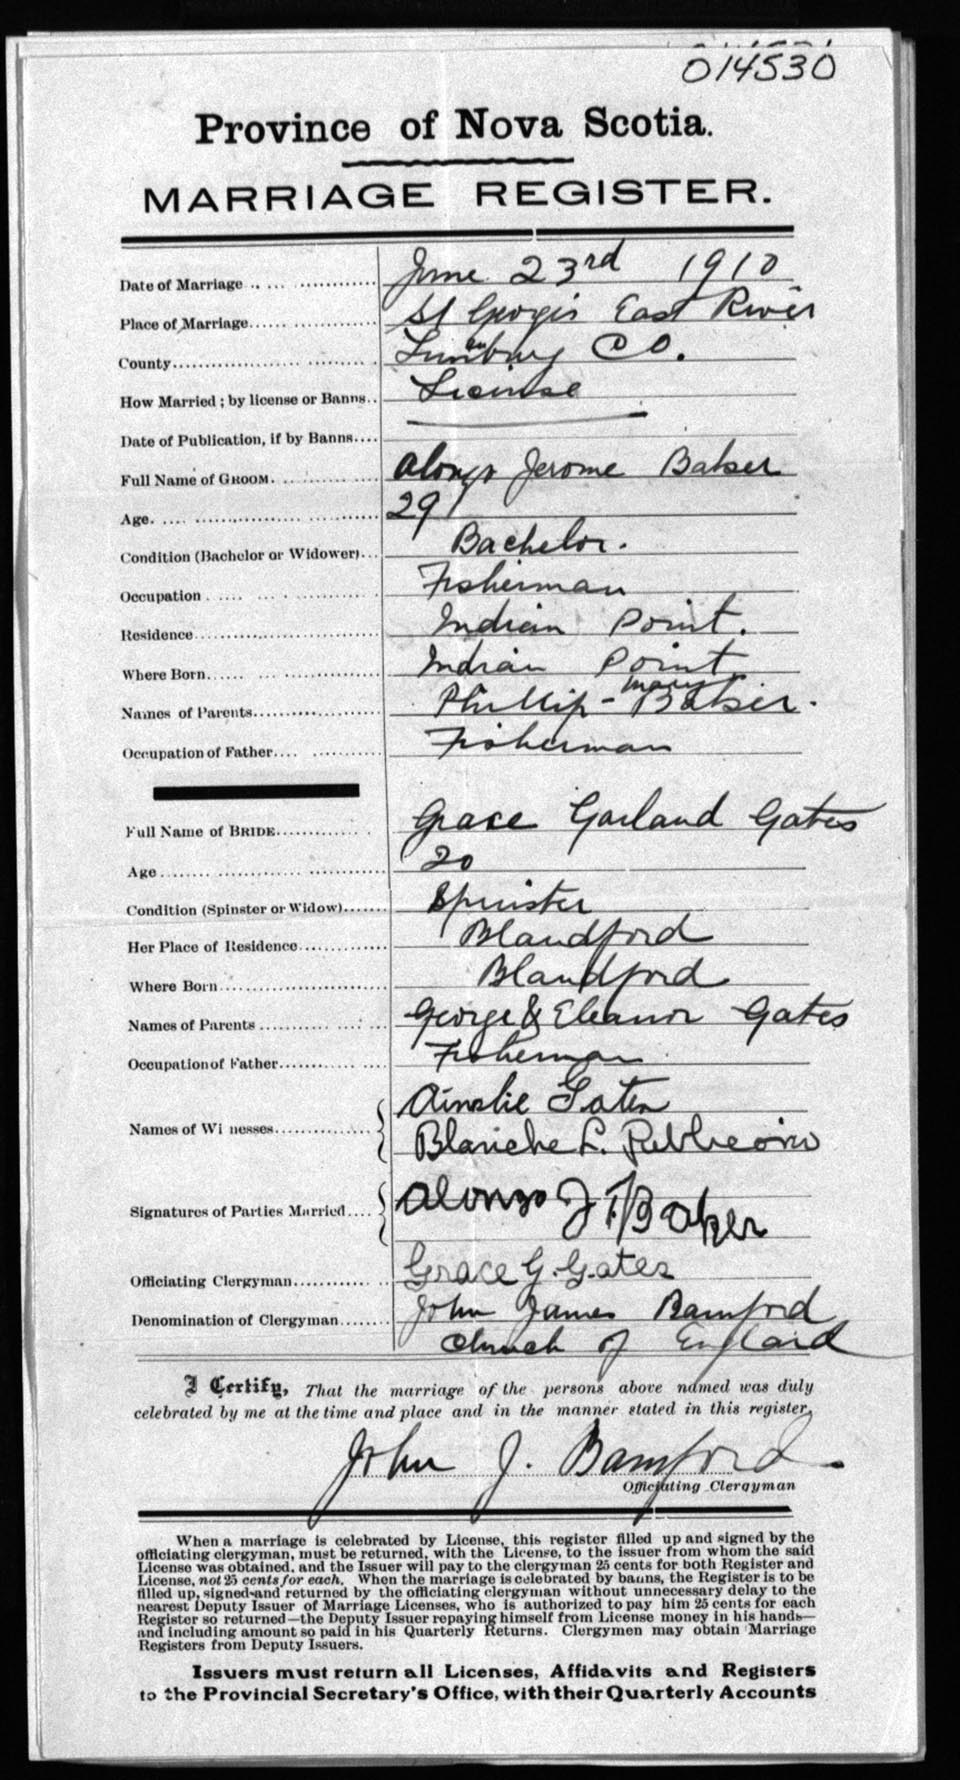 014530
Province of Nova Scotia.
MARRIAGE REGISTER.
Date of Marriage June 23rd 1910
Place of Marriage St Georges East River
County Lunenburg Co.
How Married; by license or Banns License
Date of Publication, if by Banns
Full Name of GROOM. Alonzo Jerome Baker
Age. 29
Condition (Bachelor or Widower) Bachelor.
Occupation Fisherman
Residence Indian Point.
Where Born Indian Point
Names of Parents Phillip - Mary Baker.
Occupation of Father Fisherman
Full Name of BRIDE Grace Garland Gates
Age 20
Condition (Spinster or Widow) Spinster
Her Place of Residence Blandford
Where Born Blandford
Names of Parents George & Eleanor Gates
Occupation of Father Fisherman
Names of Wi nesses Ainslie Gates
Blanche L.
Signatures of Parties Married Alonzo J Baker
Grace G. Gates
Officiating Clergyman John James Bamford
Denomination of Clergyman Church of England
I Certify, That the marriage of the persons above named was duly
celebrated by me at the time and place and in the manner stated in this register,
John J. Bamford
Officiating Clergyman
When a marriage is celebrated by License, this register filled up and signed by the
officiating clergyman, must be returned, with the License, to the issuer from whom the said
License was obtained, and the Issuer will pay to the clergyman 25 cents for both Register and
License, not 25 cents for each. When the marriage is celebrated by banns, the Register is to be
filled up, signed and returned by the officiating clergyman without unnecessary delay to the
nearest Deputy Issuer of Marriage Licenses, who is authorized to pay him 25 cents for each
Register so returned—the Deputy Issuer repaying himself from License money in his hands—
and including amount so paid in his Quarterly Returns. Clergymen may obtain Marriage
Registers from Deputy Issuers.
Issuers must return all Licenses, Affidavits and Registers
to the Provincial Secretary's Office, with their Quarterly Accounts